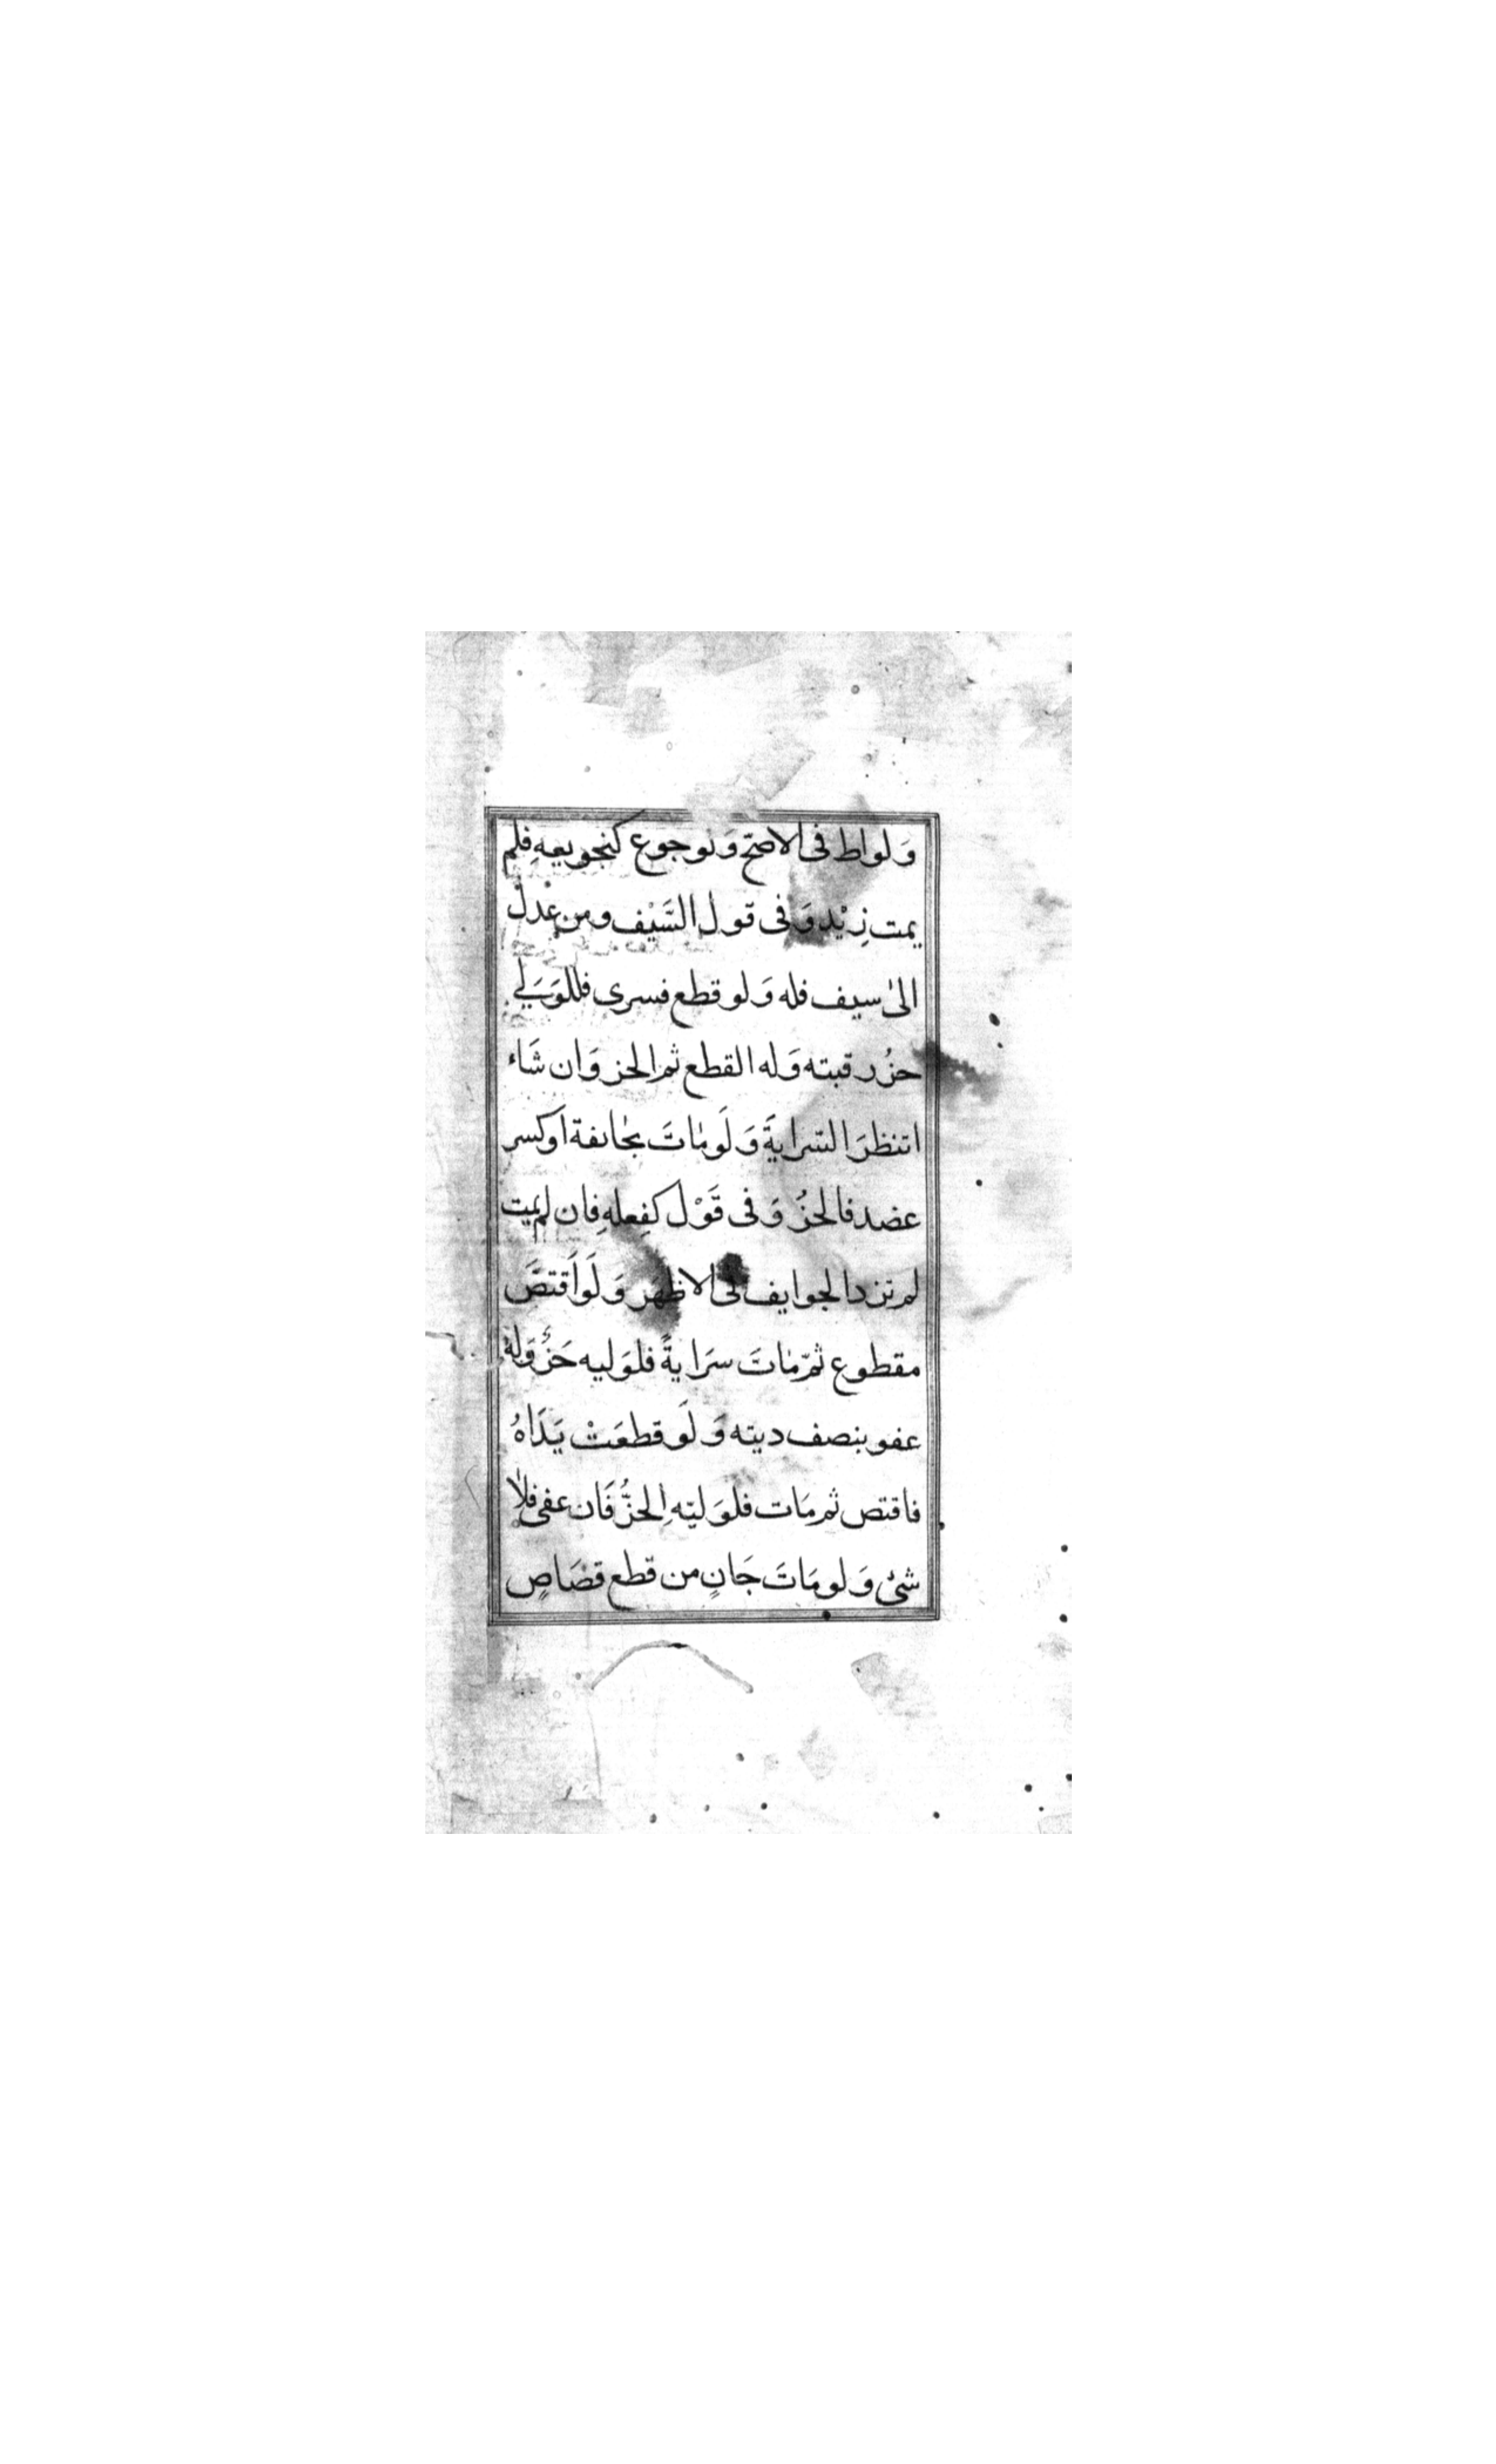 وَ لواط فى الاصحّ وَلوجوع كتجويعهِ فلم
يمت زِيْد وَفى قول السَّيْف ومن عدل
الىٰ سيف فله وَ لو قطع فسرى فللوَلي
حزُ رقبته وَله القطع ثم الحز وَان شَاء
انتظرَ السّرايةَ وَ لَو مٰاتَ بجٰائفة اَوكسر
عضد فالحزُ وَفى قَوْل كفِعلهِ فان لم يمت
لم تزد الجوايف فى الاظهر وَ لَو اَقتصَّ
مقطوع ثمّ مٰاتَ سرَايةً فلوَليه حَزُ وَلهُ
عفو بنصف ديته وَ لَو قطعَتْ يَدَاهُ
فاقتص ثم مَات فلوَليّهِ الحزُّ فَان عفى فلاٰ
شئ وَ لو مَاتَ جَانٍ من قطع قصَاصٍ